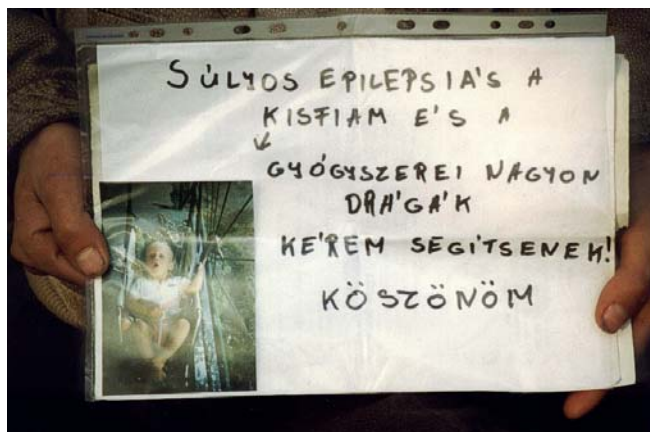 SÚLYOS EPILEPSIA'S A
KISFIAM E'S A
GYÓGYSZEREI NAGYON
DRA'GA'K
KE'REM SEGÍTSENEK!
KÖSZÖNÖM